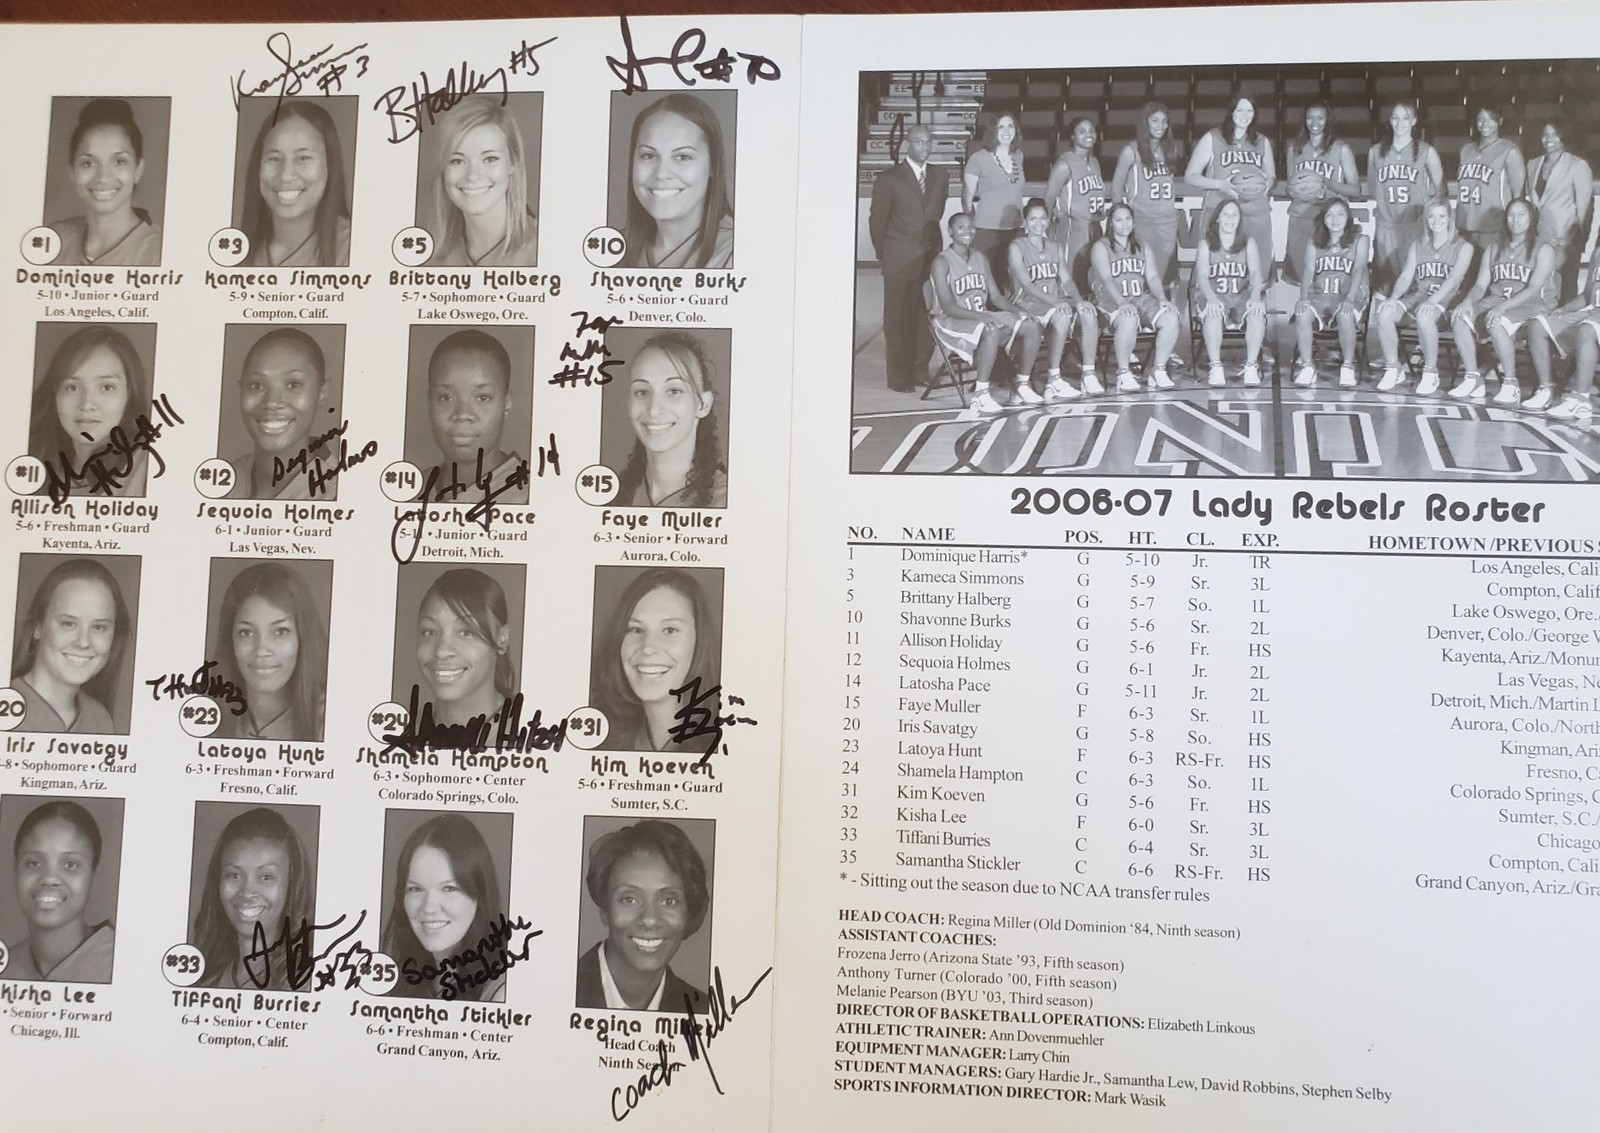 Kameca Simmons #3
B. Halberg #5
#10
#1
#3
#5
#10
Dominique Harris
5-10 • Junior • Guard
Los Angeles, Calif.
Kameca Simmons
5-9 • Senior • Guard
Compton, Calif.
Brittany Halberg
5-7 • Sophomore • Guard
Lake Oswego, Ore.
Shavonne Burks
5-6 • Senior • Guard
Denver, Colo.
#15
#11
Sequoia Holmes
#14
#11
#12
#14
#15
Allison Holiday
5-6 • Freshman • Guard
Kayenta, Ariz.
Sequoia Holmes
6-1 • Junior • Guard
Las Vegas, Nev.
Latosha Pace
5-11 • Junior • Guard
Detroit, Mich.
Faye Muller
6-3 • Senior • Forward
Aurora, Colo.
T Hunt #23
Kim Koeven
20
#23
#24
#31
Iris Savatgy
-8 • Sophomore • Guard
Kingman, Ariz.
Latoya Hunt
6-3 • Freshman • Forward
Fresno, Calif.
Shamela Hampton
6-3 • Sophomore • Center
Colorado Springs, Colo.
Kim Koeven
5-6 • Freshman • Guard
Sumter, S.C.
#33
Samantha Stickler
#33
#35
Kisha Lee
• Senior • Forward
Chicago, Ill.
Tiffani Burries
6-4 • Senior • Center
Compton, Calif.
Samantha Stickler
6-6 • Freshman • Center
Grand Canyon, Ariz.
Regina Miller
Head Coach
Ninth Season
Coach Miller
UNLV 32
UNLV 23
UNLV
UNLV
UNLV 15
UNLV 24
UNLV 12
UNLV 1
UNLV 10
UNLV 31
UNLV 11
UNLV 5
UNLV 3
2006-07 Lady Rebels Roster
NO. NAME POS. HT. CL. EXP. HOMETOWN/PREVIOUS S
1 Dominique Harris* G 5-10 Jr. TR Los Angeles, Cali
3 Kameca Simmons G 5-9 Sr. 3L Compton, Calif
5 Brittany Halberg G 5-7 So. 1L Lake Oswego, Ore./
10 Shavonne Burks G 5-6 Sr. 2L Denver, Colo./George W
11 Allison Holiday G 5-6 Fr. HS Kayenta, Ariz./Monum
12 Sequoia Holmes G 6-1 Jr. 2L Las Vegas, Ne
14 Latosha Pace G 5-11 Jr. 2L Detroit, Mich./Martin L
15 Faye Muller F 6-3 Sr. 1L Aurora, Colo./North
20 Iris Savatgy G 5-8 So. HS Kingman, Ariz
23 Latoya Hunt F 6-3 RS-Fr. HS Fresno, Ca
24 Shamela Hampton C 6-3 So. 1L Colorado Springs, C
31 Kim Koeven G 5-6 Fr. HS Sumter, S.C./
32 Kisha Lee F 6-0 Sr. 3L Chicago
33 Tiffani Burries C 6-4 Sr. 3L Compton, Cali
35 Samantha Stickler C 6-6 RS-Fr. HS Grand Canyon, Ariz./Gra
* - Sitting out the season due to NCAA transfer rules
HEAD COACH: Regina Miller (Old Dominion ‘84, Ninth season)
ASSISTANT COACHES:
Frozena Jerro (Arizona State ’93, Fifth season)
Anthony Turner (Colorado ’00, Fifth season)
Melanie Pearson (BYU ’03, Third season)
DIRECTOR OF BASKETBALL OPERATIONS: Elizabeth Linkous
ATHLETIC TRAINER: Ann Dovenmuehler
EQUIPMENT MANAGER: Larry Chin
STUDENT MANAGERS: Gary Hardie Jr., Samantha Lew, David Robbins, Stephen Selby
SPORTS INFORMATION DIRECTOR: Mark Wasik